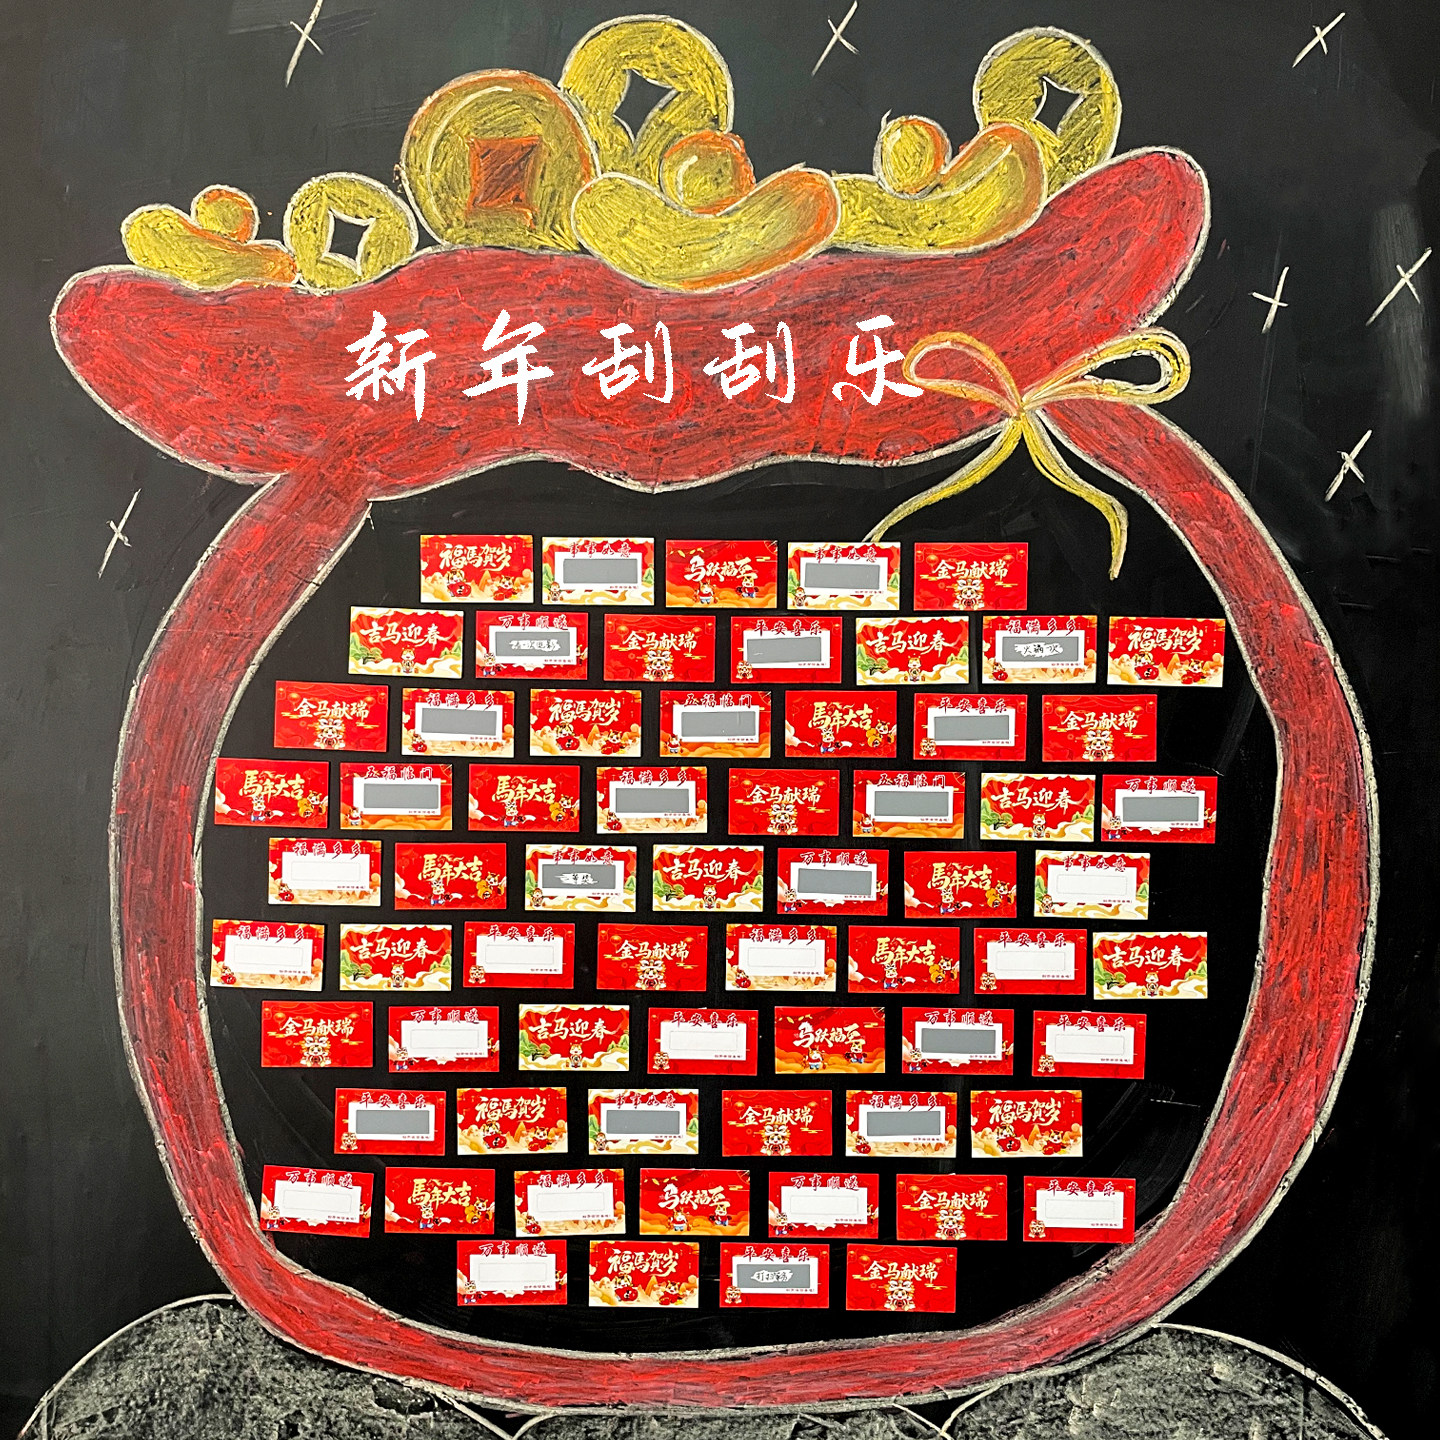 新年刮刮乐
福馬贺岁 事事如意 马跃福至 事事如意 金马献瑞
吉马迎春 万事顺遂 金马献瑞 平安喜乐 吉马迎春 福满多多 火锅一次 福馬贺岁
金马献瑞 福满多多 福馬贺岁 五福临门 馬年大吉 平安喜乐 金马献瑞
馬年大吉 五福临门 馬年大吉 福满多多 金马献瑞 五福临门 吉马迎春 万事顺遂
福满多多 馬年大吉 事事如意 一等奖 吉马迎春 万事顺遂 馬年大吉 事事如意
福满多多 吉马迎春 平安喜乐 金马献瑞 福满多多 馬年大吉 平安喜乐 吉马迎春
金马献瑞 万事顺遂 吉马迎春 平安喜乐 马跃福至 万事顺遂 平安喜乐
平安喜乐 福馬贺岁 事事如意 金马献瑞 福满多多 福馬贺岁
万事顺遂 馬年大吉 福满多多 马跃福至 万事顺遂 金马献瑞 平安喜乐
万事顺遂 福馬贺岁 平安喜乐 金马献瑞